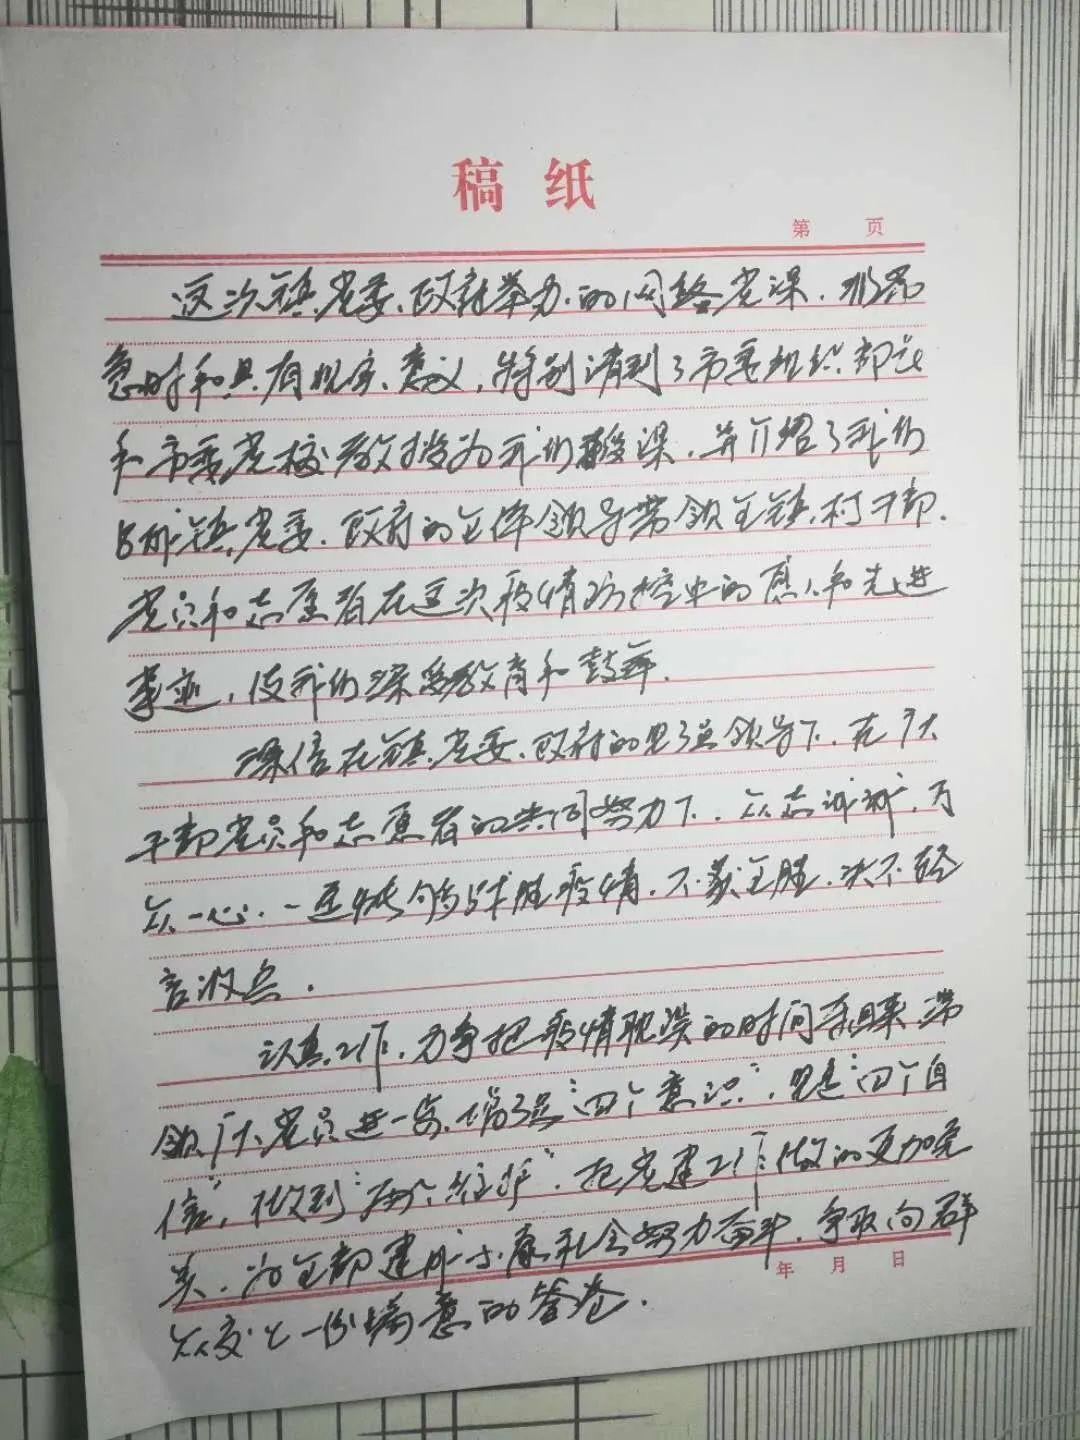 稿纸
第 页
这次镇党委、政府举办的网络党课,非常
急时和具有现实意义,特别请到了市委组织部长
和市委党校教授为我们授课,并介绍了我们
镇党委、政府的全体领导带领全镇村干部、
党员和志愿者在这次疫情防控中的感人和先进
事迹,使我们深受教育和鼓舞.
深信在镇党委、政府的坚强领导下,在广大
干部党员和志愿者的共同努力下,众志诚诚,万
众一心,一定能够战胜疫情,不获全胜,决不轻
言收兵.
认真工作,力争把疫情耽误的时间夺回来,带
领广大党员进一步增强“四个意识”,坚定“四个自
信”,做到“两个维护”,把党建工作做的更加完
美,为全部建成小康社会努力奋斗,争取向群
众交上一份满意的答卷.
年 月 日